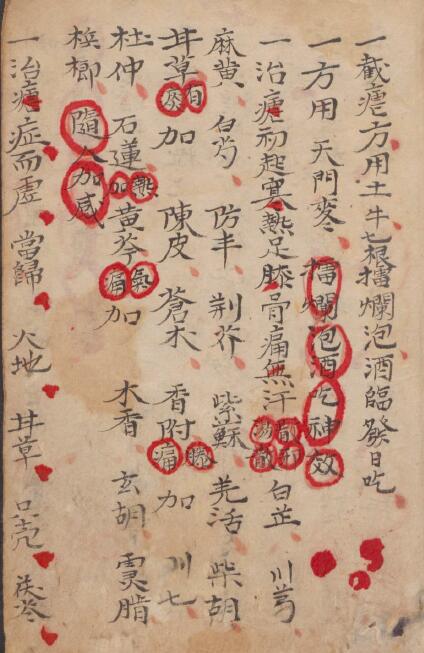 一截瘧方用土牛七根擂爛泡酒臨發日吃
一方用天門麥冬擂爛泡酒吃神效
一治瘧初起寒熱足膝骨痛無汗 白芷 川芎
麻黄 白芍 防丰 荆芥 紫蘇 羌活 柴胡
甘草 有 加 陳皮 蒼木 香附 膝痛 加 川七
杜仲 石蓮 熱加 黄芩 氣痛 加 木香 玄胡
梹榔 隨人加减
一治瘧症而虛 當歸 大地 甘草 只壳 茯苓